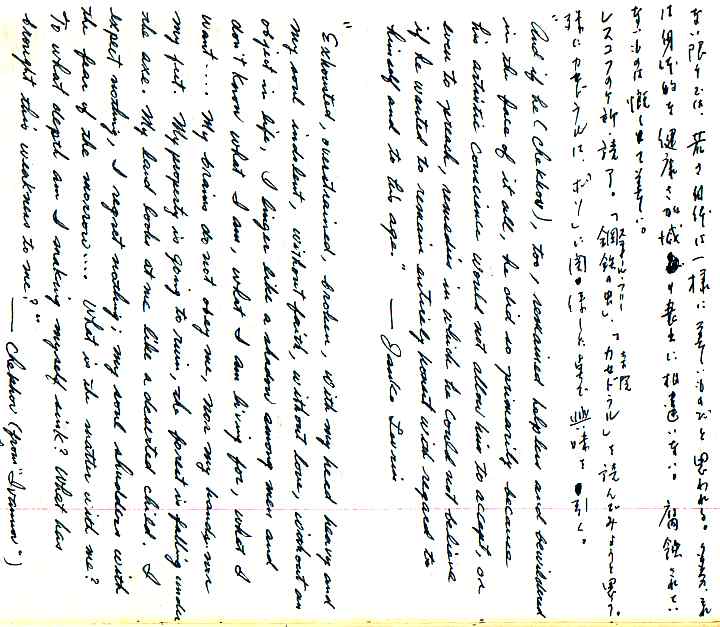 ない限りでは、若い身体は一様に美しいものだと思われる。
は肉体的な健康さの加減の喪失に相違いない。腐蝕されてい
ないものは概して美しい。
レスコフの手新読了。「鋼鉄の蚤」「カセドラル」を読んでみようと思う。
殊にカセドラルは、ボソに関係した点で興味を引く。
"And if he (Chekhov), too, remained helpless and bewildered
in the face of it all, he did so primarily because
his artistic conscience would not allow him to accept, or
even to preach, remedies in which he could not believe
if he wanted to remain entirely honest with regard to
himself and to his age." — Janko Lavrin
"Exhausted, overstrained, broken, with my head heavy and
my soul indolent, without faith, without love, without an
object in life, I linger like a shadow among men and
don't know what I am, what I am living for, what I
want.... My brains do not obey me, nor my hands, nor
my feet. My property is going to ruin, the forest is falling under
the axe. My land looks at me like a deserted child. I
expect nothing, I regret nothing; my soul shudders with
the fear of the morrow.... What is the matter with me?
To what depth am I making myself sink? What has
brought this weakness to me?" — Chekhov (from "Ivanov")